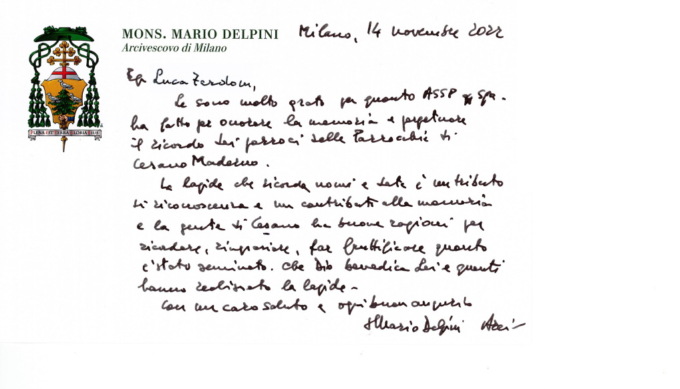 MONS. MARIO DELPINI
Arcivescovo di Milano
Milano, 14 novembre 2022
Luca Zardoni,
Le sono molto grato per quanto ASSP Spa
ha fatto per onorare la memoria e perpetuare
il ricordo dei parroci delle Parrocchie di
Cesano Maderno.
La lapide che ricorda nomi e date è un tributo
di riconoscenza e un contributo alla memoria
e la gente di Cesano ha buone ragioni per
ricordare, ringraziare, far fruttificare quanto
è stato seminato. Che Dio benedica Lei e quanti
hanno realizzato la lapide -
Con un caro saluto e ogni buon augurio
+ Mario Delpini